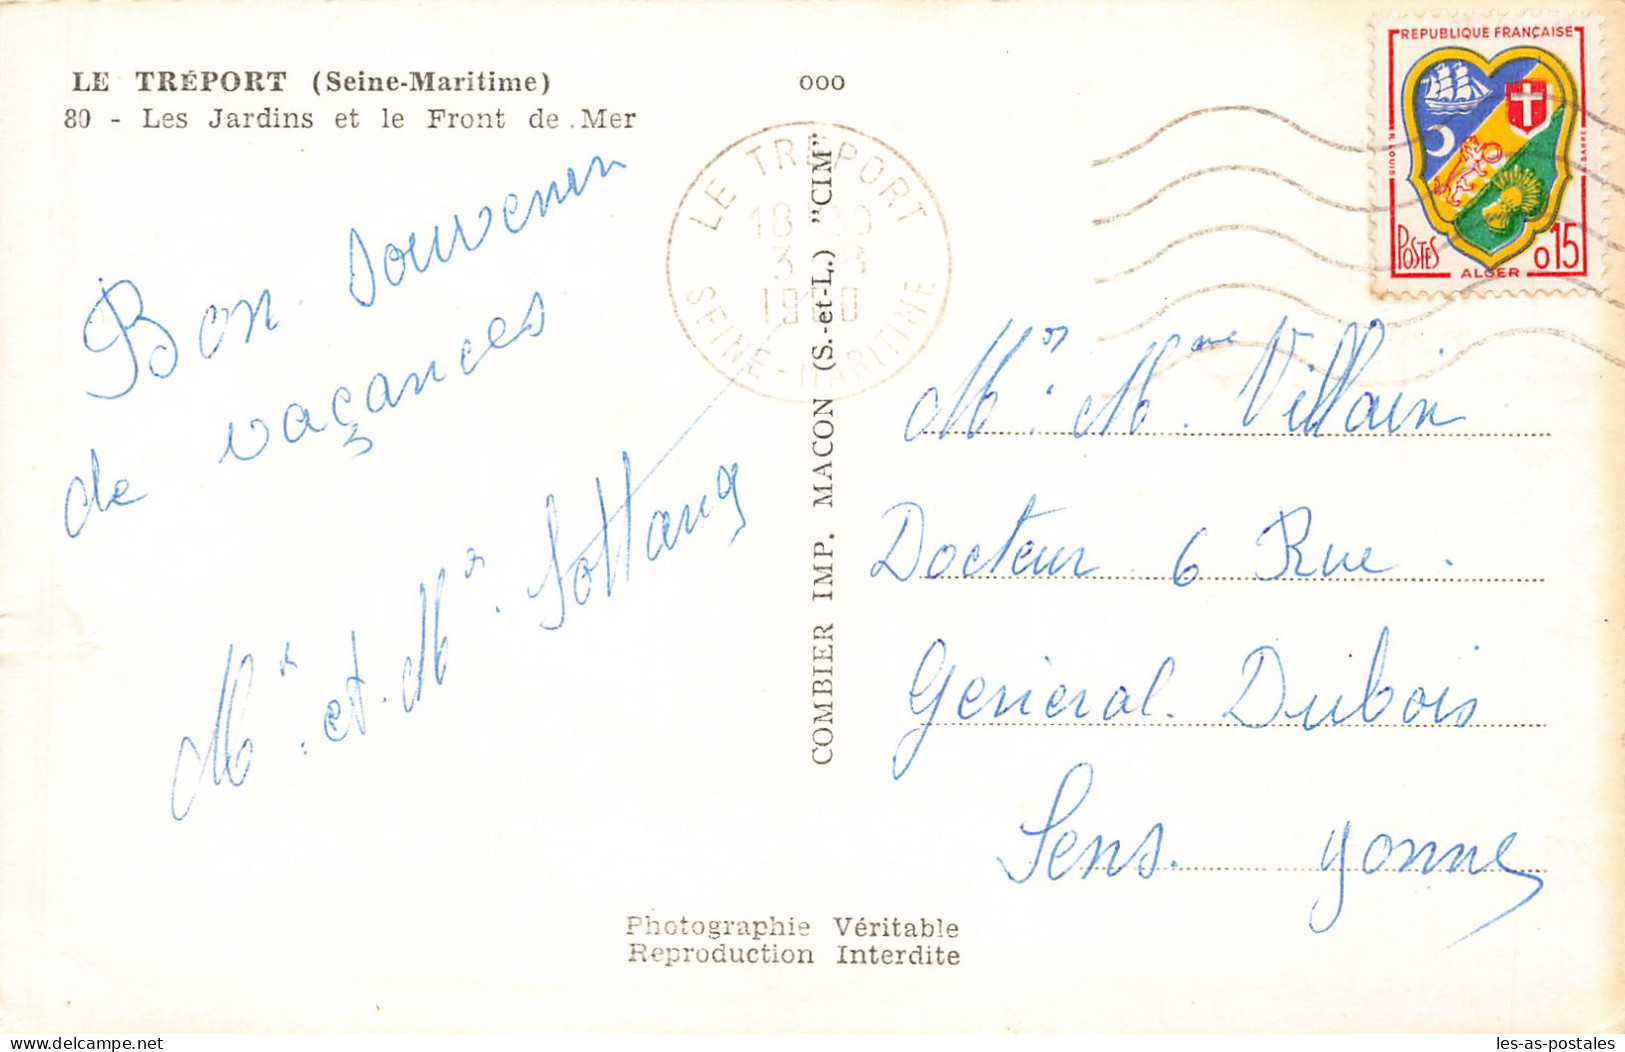 LE TRÉPORT (Seine-Maritime)
80 - Les Jardins et le Front de Mer
000
Bon Souvenir
de vaçances
Mr. et Mr.
LE TRÉPORT
18 30
1960
SEINE-MARITIME
COMBIER IMP. MACON (S.-et-L.) "CIM"
REPUBLIQUE FRANÇAISE
R. LOUIS
BARRE
POSTES
ALGER
0,15
Mr. Mme Villain
Docteur 6 Rue
General Dubois
Sens. Yonne
Photographie Véritable
Reproduction Interdite
Delcampe.net
les-as-postales